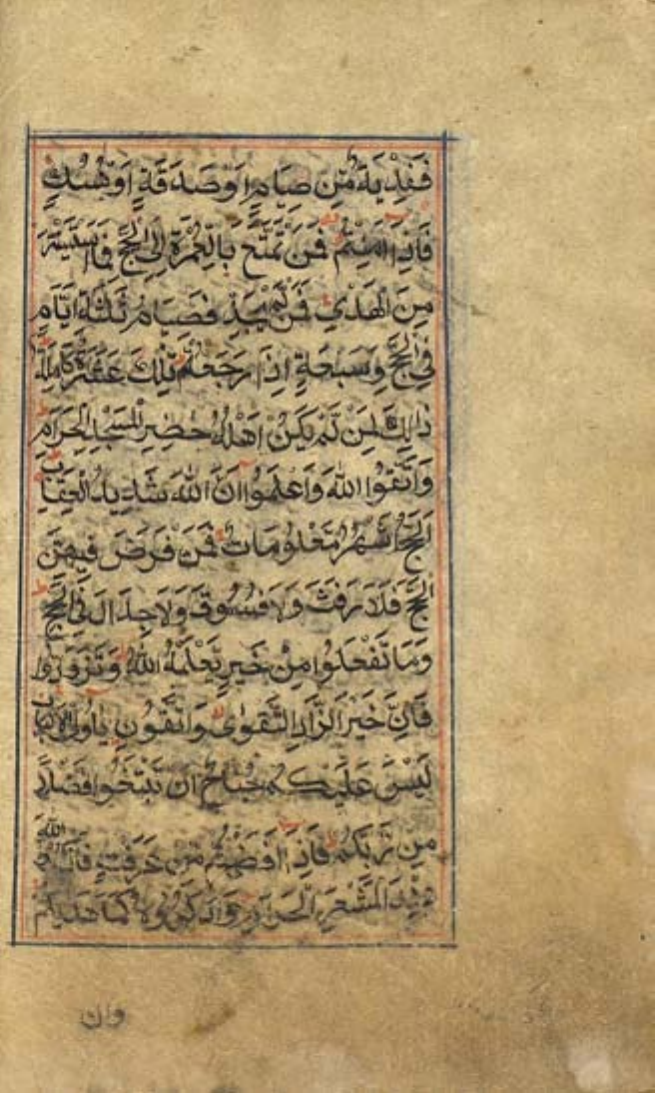 فَفِدْيَةٌ مِّن صِيَامٍ اَوْ صَدَقَةٍ اَوْ نُسُكٍ
فَاِذَا اَمِنْتُمْ فَمَنْ تَمَتَّعَ بِالْعُمْرَةِ اِلَى الْحَجِّ فَمَا اسْتَيْسَرَ
مِنَ الْهَدْىِ فَمَنْ لَّمْ يَجِدْ فَصِيَامُ ثَلٰثَةِ اَيَّامٍ
فِى الْحَجِّ وَسَبْعَةٍ اِذَا رَجَعْتُمْ تِلْكَ عَشَرَةٌ كَامِلَةٌ
ذَالِكَ لِمَنْ لَّمْ يَكُنْ اَهْلُهُ حَاضِرِى الْمَسْجِدِ الْحَرَامِ
وَاتَّقُوا اللّٰهَ وَاعْلَمُوا اَنَّ اللّٰهَ شَدِيدُ الْعِقَابِ
اَلْحَجُّ اَشْهُرٌ مَّعْلُومَاتٌ فَمَنْ فَرَضَ فِيهِنَّ
الْحَجَّ فَلَا رَفَثَ وَلَا فُسُوقَ وَلَا جِدَالَ فِى الْحَجِّ
وَمَا تَفْعَلُوا مِنْ خَيْرٍ يَّعْلَمْهُ اللّٰهُ وَتَزَوَّدُوا
فَاِنَّ خَيْرَ الزَّادِ التَّقْوٰى وَاتَّقُونِ يٰاُولِى الْاَلْبَابِ
لَيْسَ عَلَيْكُمْ جُنَاحٌ اَنْ تَبْتَغُوا فَضْلًا
مِّنْ رَّبِّكُمْ فَاِذَا اَفَضْتُمْ مِّنْ عَرَفَاتٍ فَاذْكُرُوا اللّٰهَ
عِنْدَ الْمَشْعَرِ الْحَرَامِ وَاذْكُرُوهُ كَمَا هَدٰيكُمْ
وان